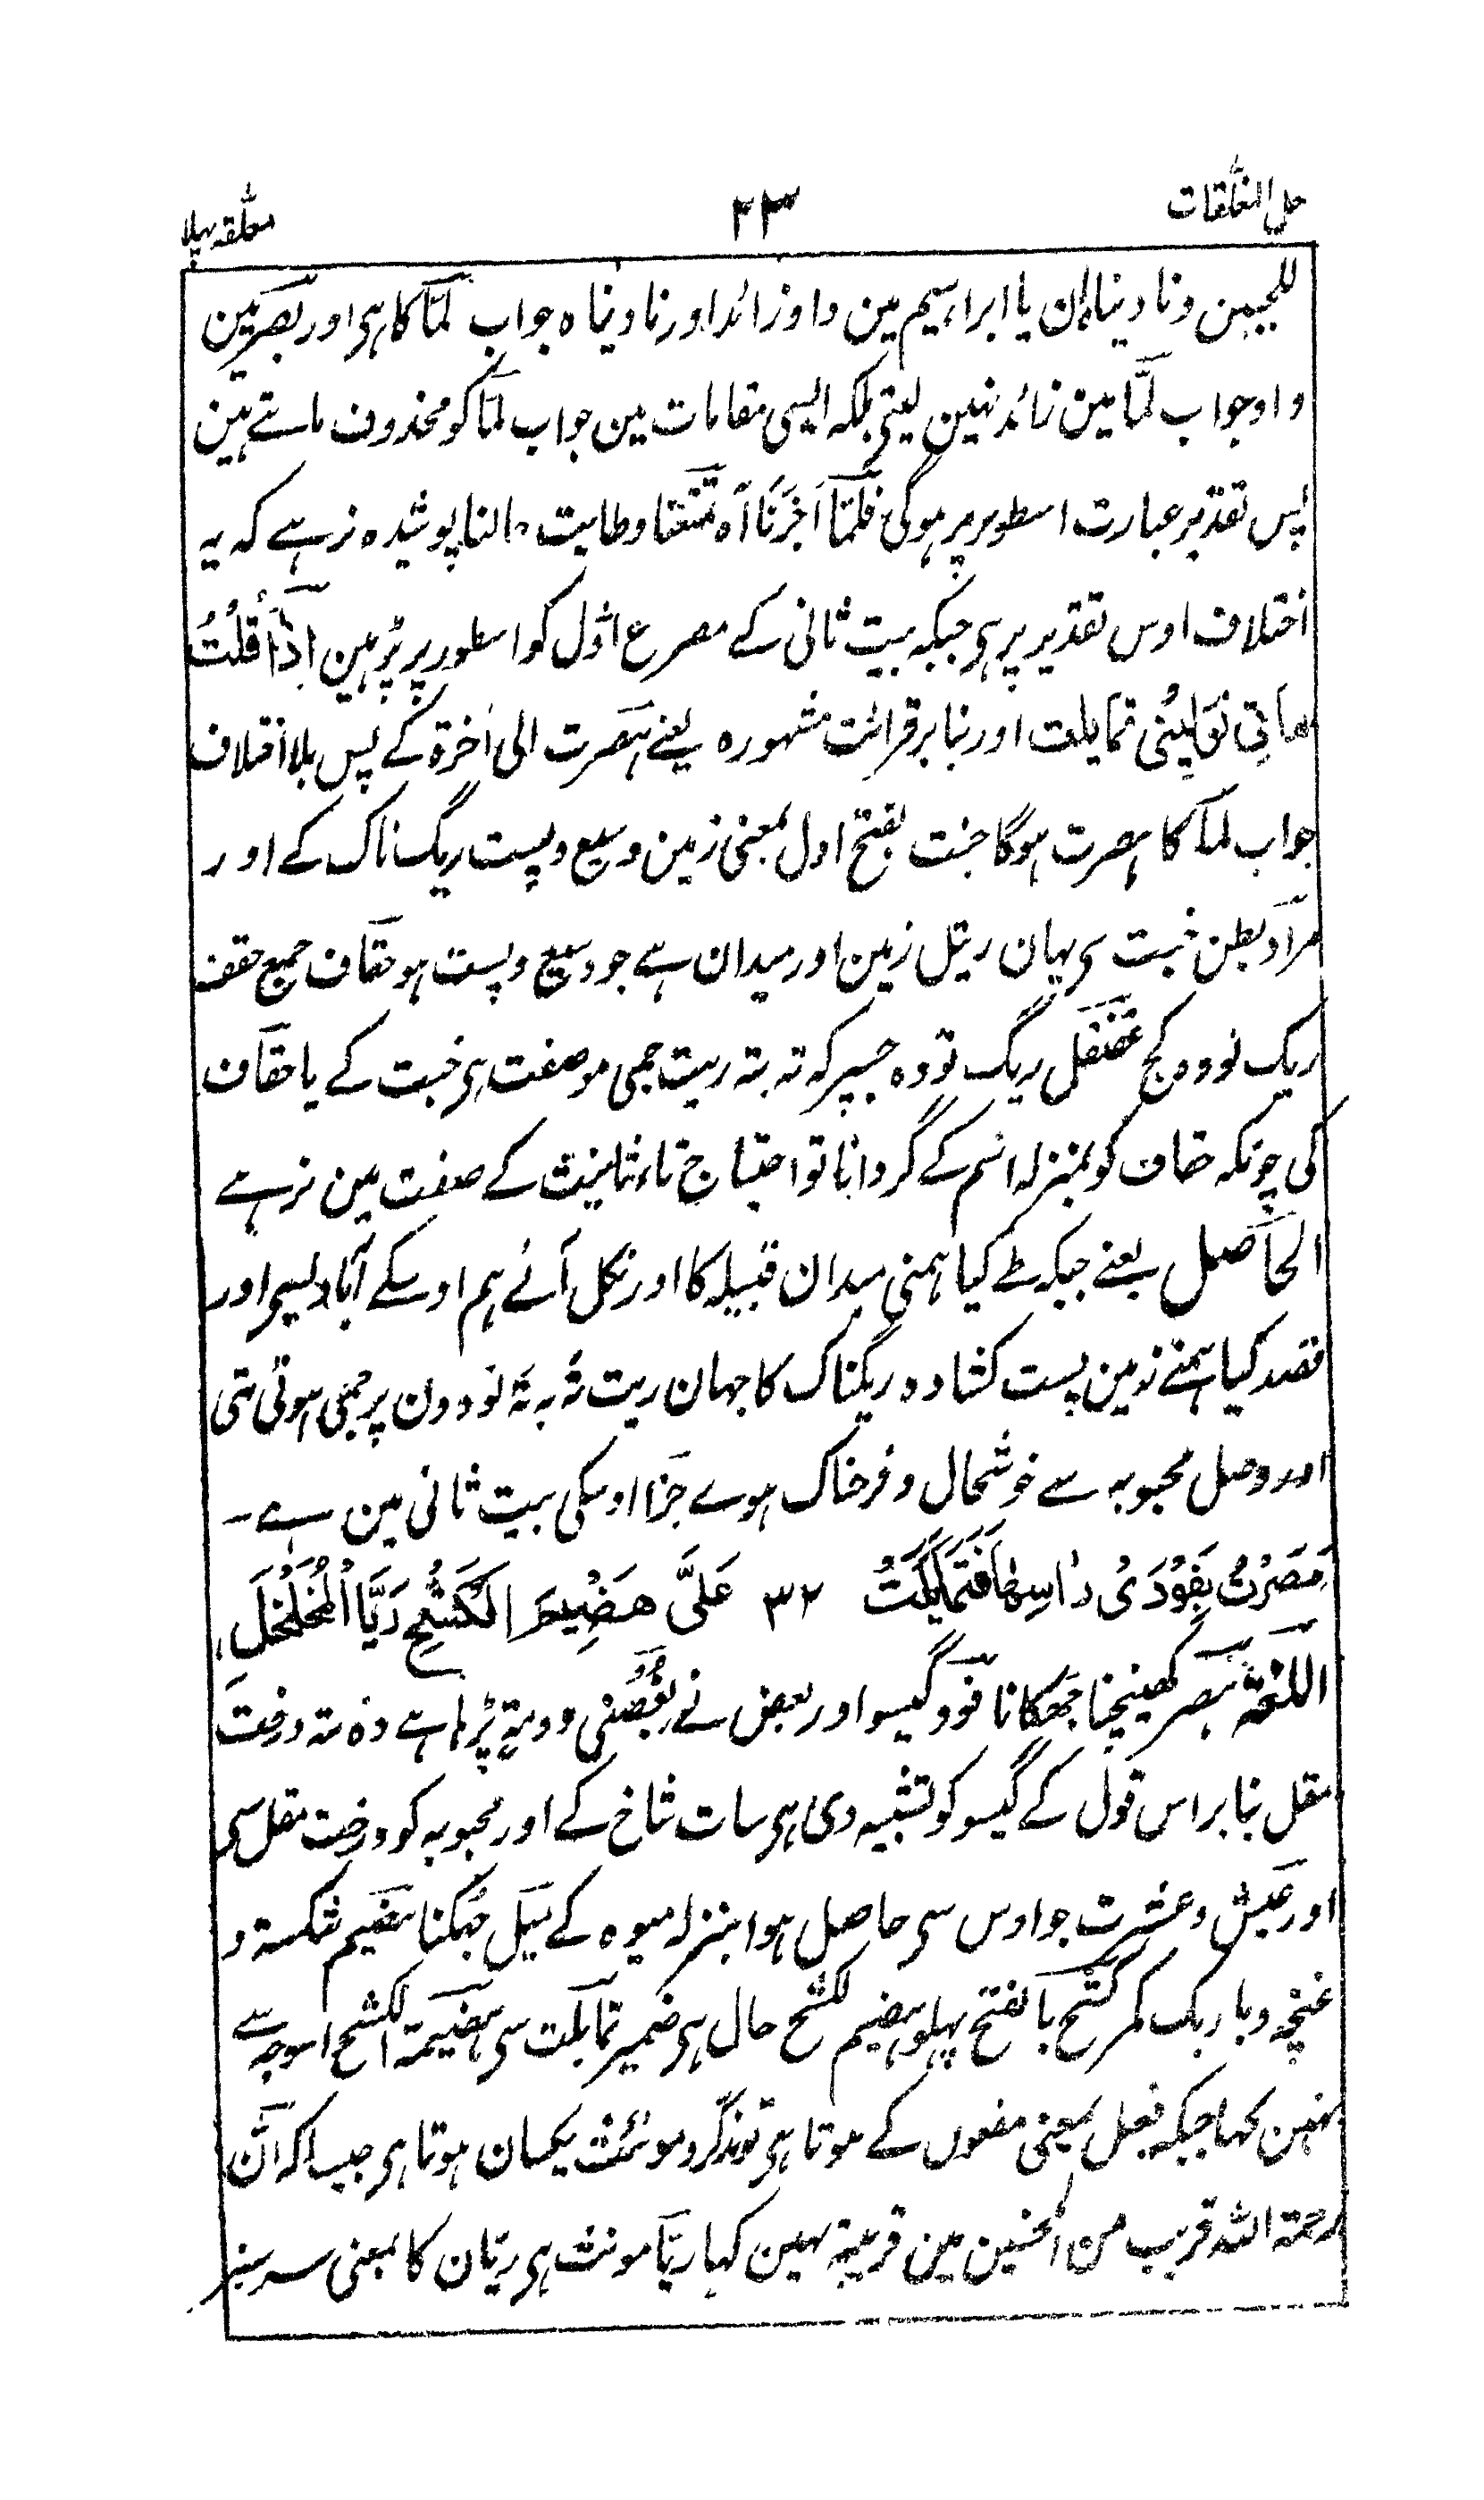 حل المعلقات ۲۳ معلقہ پہلا
للجبین ونادیناہ ان یا ابراہیم مین واو زائد اور نادیناہ جواب لمّا کا ہی اور بصریین
واو جواب لمّا مین زائد نہین لیتی بلکہ ایسی مقامات مین جواب لمّا کو محذوف مانتے ہین
پس تقدیر عبارت اسطور پر ہوگی فلمّا اجزنا آہ تمتعنا وطابت النا پوشیدہ نرہے کہ یہ
اختلاف اوس تقدیر پر ہی جبکہ بیت ثانی کے مصرع اوّل کو اسطور پر پڑہین اِذَا قُلْتُ
ھاتِی نَوِّلِینِی تمایلت اور بنا بر قرائت مشہورہ یعنے ہصرت الی اٰخرہ کے پس بلا اختلاف
جواب لمّا کا ہصرت ہوگا خبت بفتح اول بمعنی زمین وسیع وپست ریگ ناک کے اور
مراد بطن خبت سی یہان ریتل زمین اور میدان ہے جو وسیع وپست ہو حقاف جمع حقف
ریگ تودہ کج عقنقل ریگ تودہ جسپر کہ تہ بتہ ریت جمی ہو صفت ہی خبت کے یا حقاف
کی چونکہ حقاف کو بمنزلہ اسم کے گردانا تو احتیاج تاء تانیث کے صفت مین نرہے
الحاصل یعنے جبکہ طے کیا ہمنی میدان قبیلہ کا اور نکل آئے ہم اوسکے آبادی سی اور
قصد کیا ہمنے زمین پست کشادہ ریگناک کا جہان ریت تہ بہ تہ تودون پر جمی ہوئی تہی
اور وصل محبوبہ سے خوشحال و فرحناک ہوے جزا اوسکی بیت ثانی مین ہے ۔
هَصَرْتُ بِفَوْدَیْ رَاسِهَا فَتَمَایَلَتْ ۳۲ عَلَیَّ هَضِیْمَ الْکَشْحِ رَیَّا الْمُخَلْخَلِ
اللغۃ ہصر کھینچنا جھکانا فود گیسو اور بعض نے بغصنی دومۃٍ پڑہا ہے دومہ درخت
مقل بنا بر اس قول کے گیسو کو تشبیہ دی ہی سات شاخ کے اور محبوبہ کو درخت مقل سی
اور عیش وعشرت جو اوس سی حاصل ہوا بمنزلہ میوہ کے میل جھکنا ہضیم شکستہ و
غنچہ و باریک کمر کشح بالفتح پہلو ہضیم لکشح حال ہی ضمیر تمایلت سی ہضیمۃ الکشح اسوجہ سے
نہین کہا جبکہ فعیل بمعنی مفعول کے ہوتا ہی تو مذکر و موئنث یکسان ہوتا ہی جیسا کہ انّ
رحمۃ اللہ قریب من المحسنین مین قریبۃ نہین کہا ریّا مونث ہی ریّان کا بمعنی سرسبز